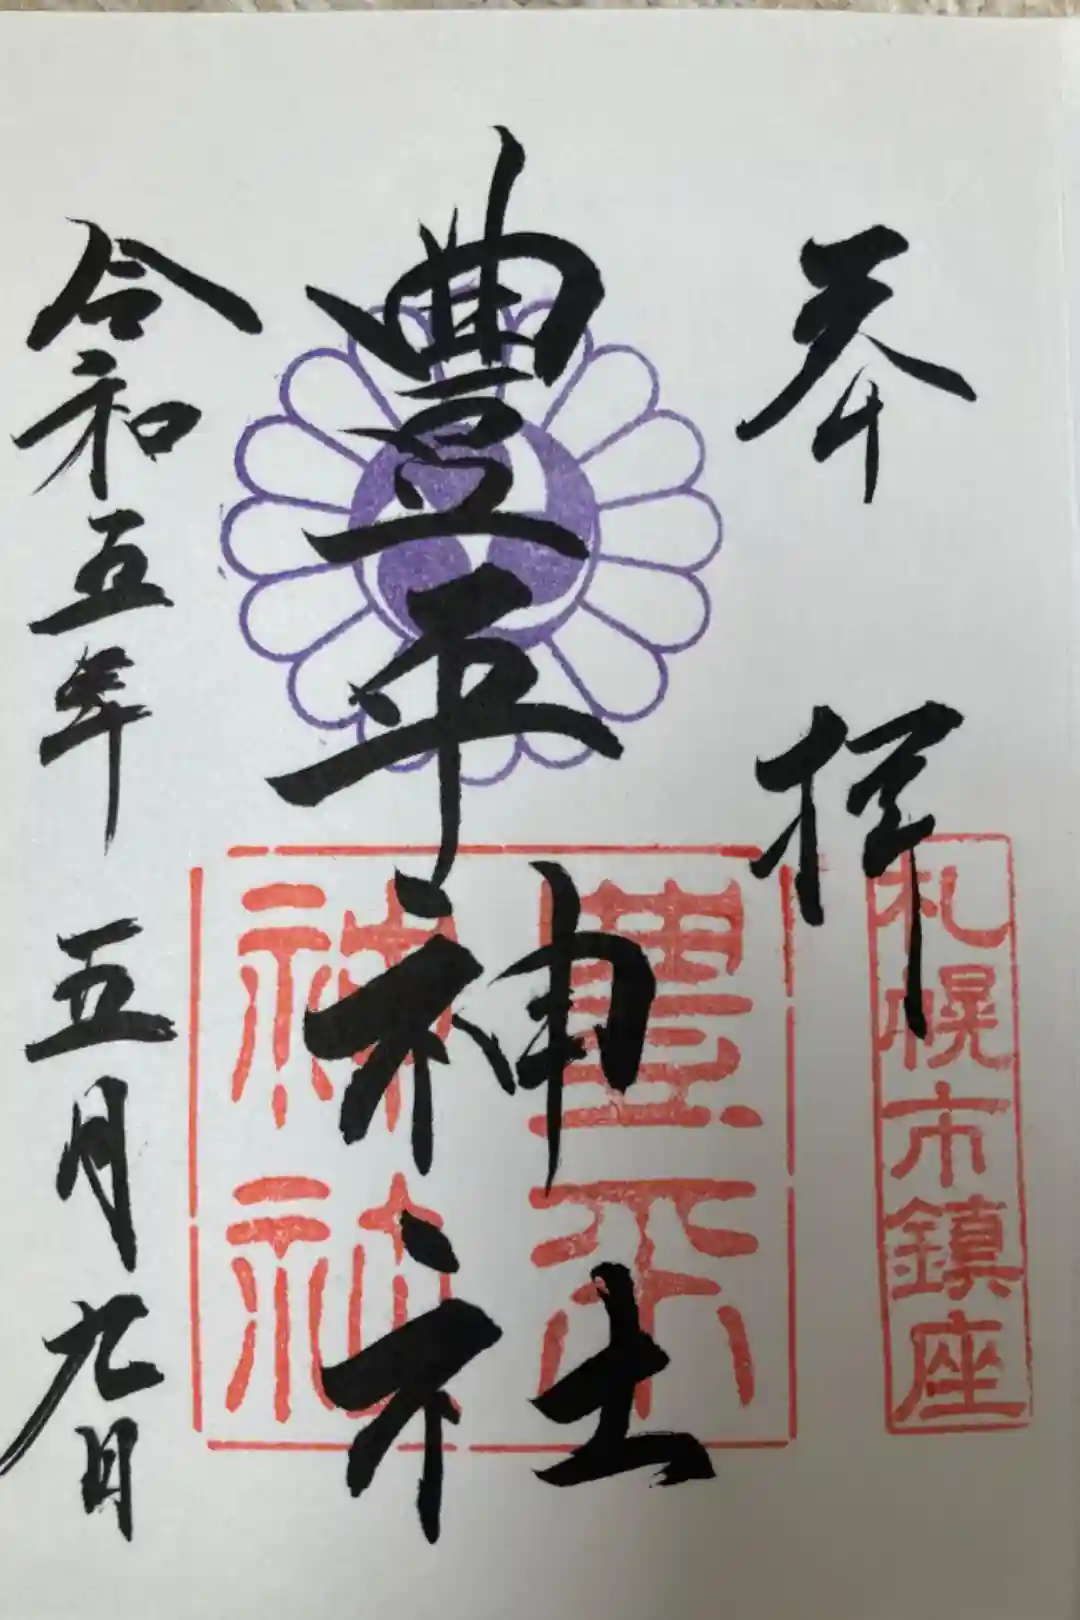 奉拝
札幌市鎮座
豊平神社
豊平
神社
令和五年五月九日